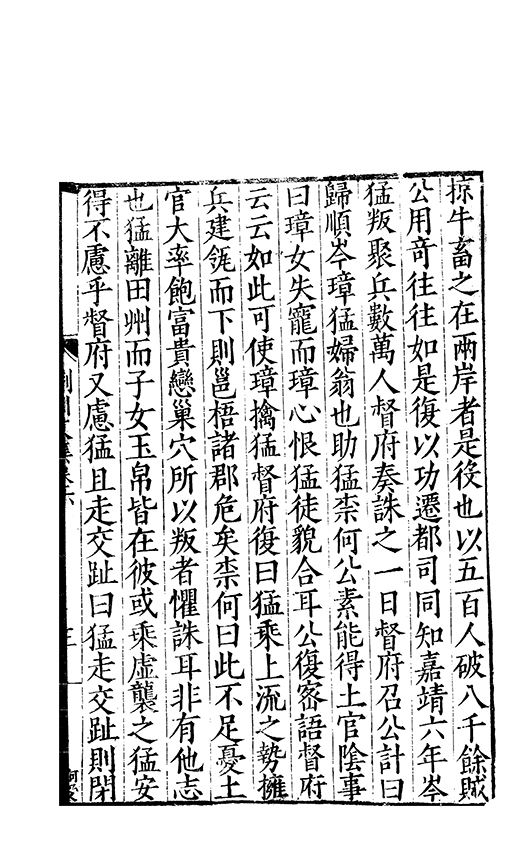 掠牛畜之在兩岸者是役也以五百人破八千餘賊
公用竒往往如是復以功遷都司同知嘉靖六年岑
猛叛聚兵數萬人督府奏誅之一日督府召公計曰
歸順岑璋猛婦翁也助猛柰何公素能得土官陰事
曰璋女失寵而璋心恨猛徒貌合耳公復密語督府
云云如此可使璋擒猛督府復曰猛乘上流之勢擁
兵建瓴而下則邕梧諸郡危矣柰何曰此不足憂土
官大率飽富貴戀巢穴所以叛者懼誅耳非有他志
也猛離田州而子女玉帛皆在彼或乘虛襲之猛安
得不慮乎督府又慮猛且走交趾曰猛走交趾則閉